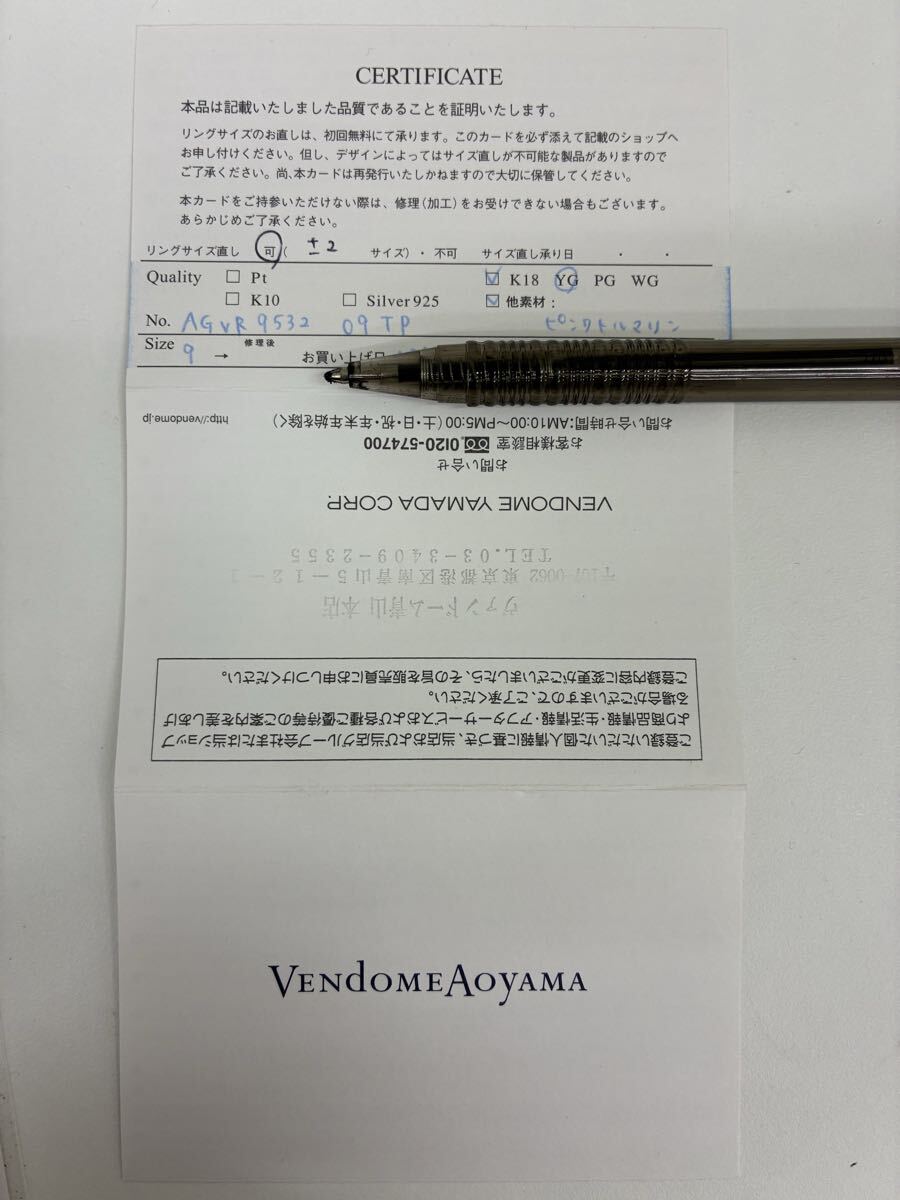 CERTIFICATE
本品は記載いたしました品質であることを証明いたします。
リングサイズのお直しは、初回無料にて承ります。このカードを必ず添えて記載のショップへ
お申し付けください。但し、デザインによってはサイズ直しが不可能な製品がありますので
ご了承ください。尚、本カードは再発行いたしかねますので大切に保管してください。
本カードをご持参いただけない際は、修理(加工)をお受けできない場合もございます。
あらかじめご了承ください。
リングサイズ直し 可 ( ±2 サイズ)・不可 サイズ直し承り日 ・ ・
Quality □ Pt ☑ K18 YG PG WG
□ K10 □ Silver925 ☑ 他素材:
No. AGVR 9532 09 TP ピンクトルマリン
Size 9 → 修理後 お買い上げ日
http://vendome.jp
お問い合せ時間:AM10:00~PM5:00(土・日・祝・年末年始を除く)
お客様相談室 0120-574700
お問い合せ
VENDOME YAMADA CORP.
TEL.03-3409-2355
〒107-0062 東京都港区南青山5-12-
ヴァンドーム青山 本店
ご登録いただいた個人情報に基づき、当店および当店グループ会社または当ショップ
より商品情報・生活情報・アフターサービスおよび各種ご優待等のご案内を差しあげ
る場合がございますので、ご了承ください。
ご登録内容に変更がございましたら、その旨を販売員にお申しつけください。
VENDOMEAOYAMA